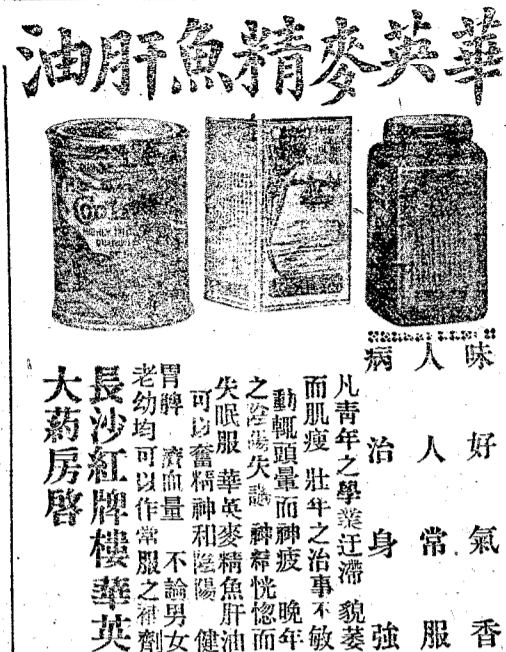 華英麥精魚肝油
味好氣香
人人常服
病治身強
凡青年之學業迂滯 貌萎
而肌瘦 壯年之治事不敏
動輒頭暈而神疲 晚年
之陰陽失調 神經恍惚而
失眠服 華英麥精魚肝油
可以奮精神和陰陽 健
胃脾 濟血量 不論男女
老幼均可以作常服之補劑
長沙紅牌樓華英
大葯房啓